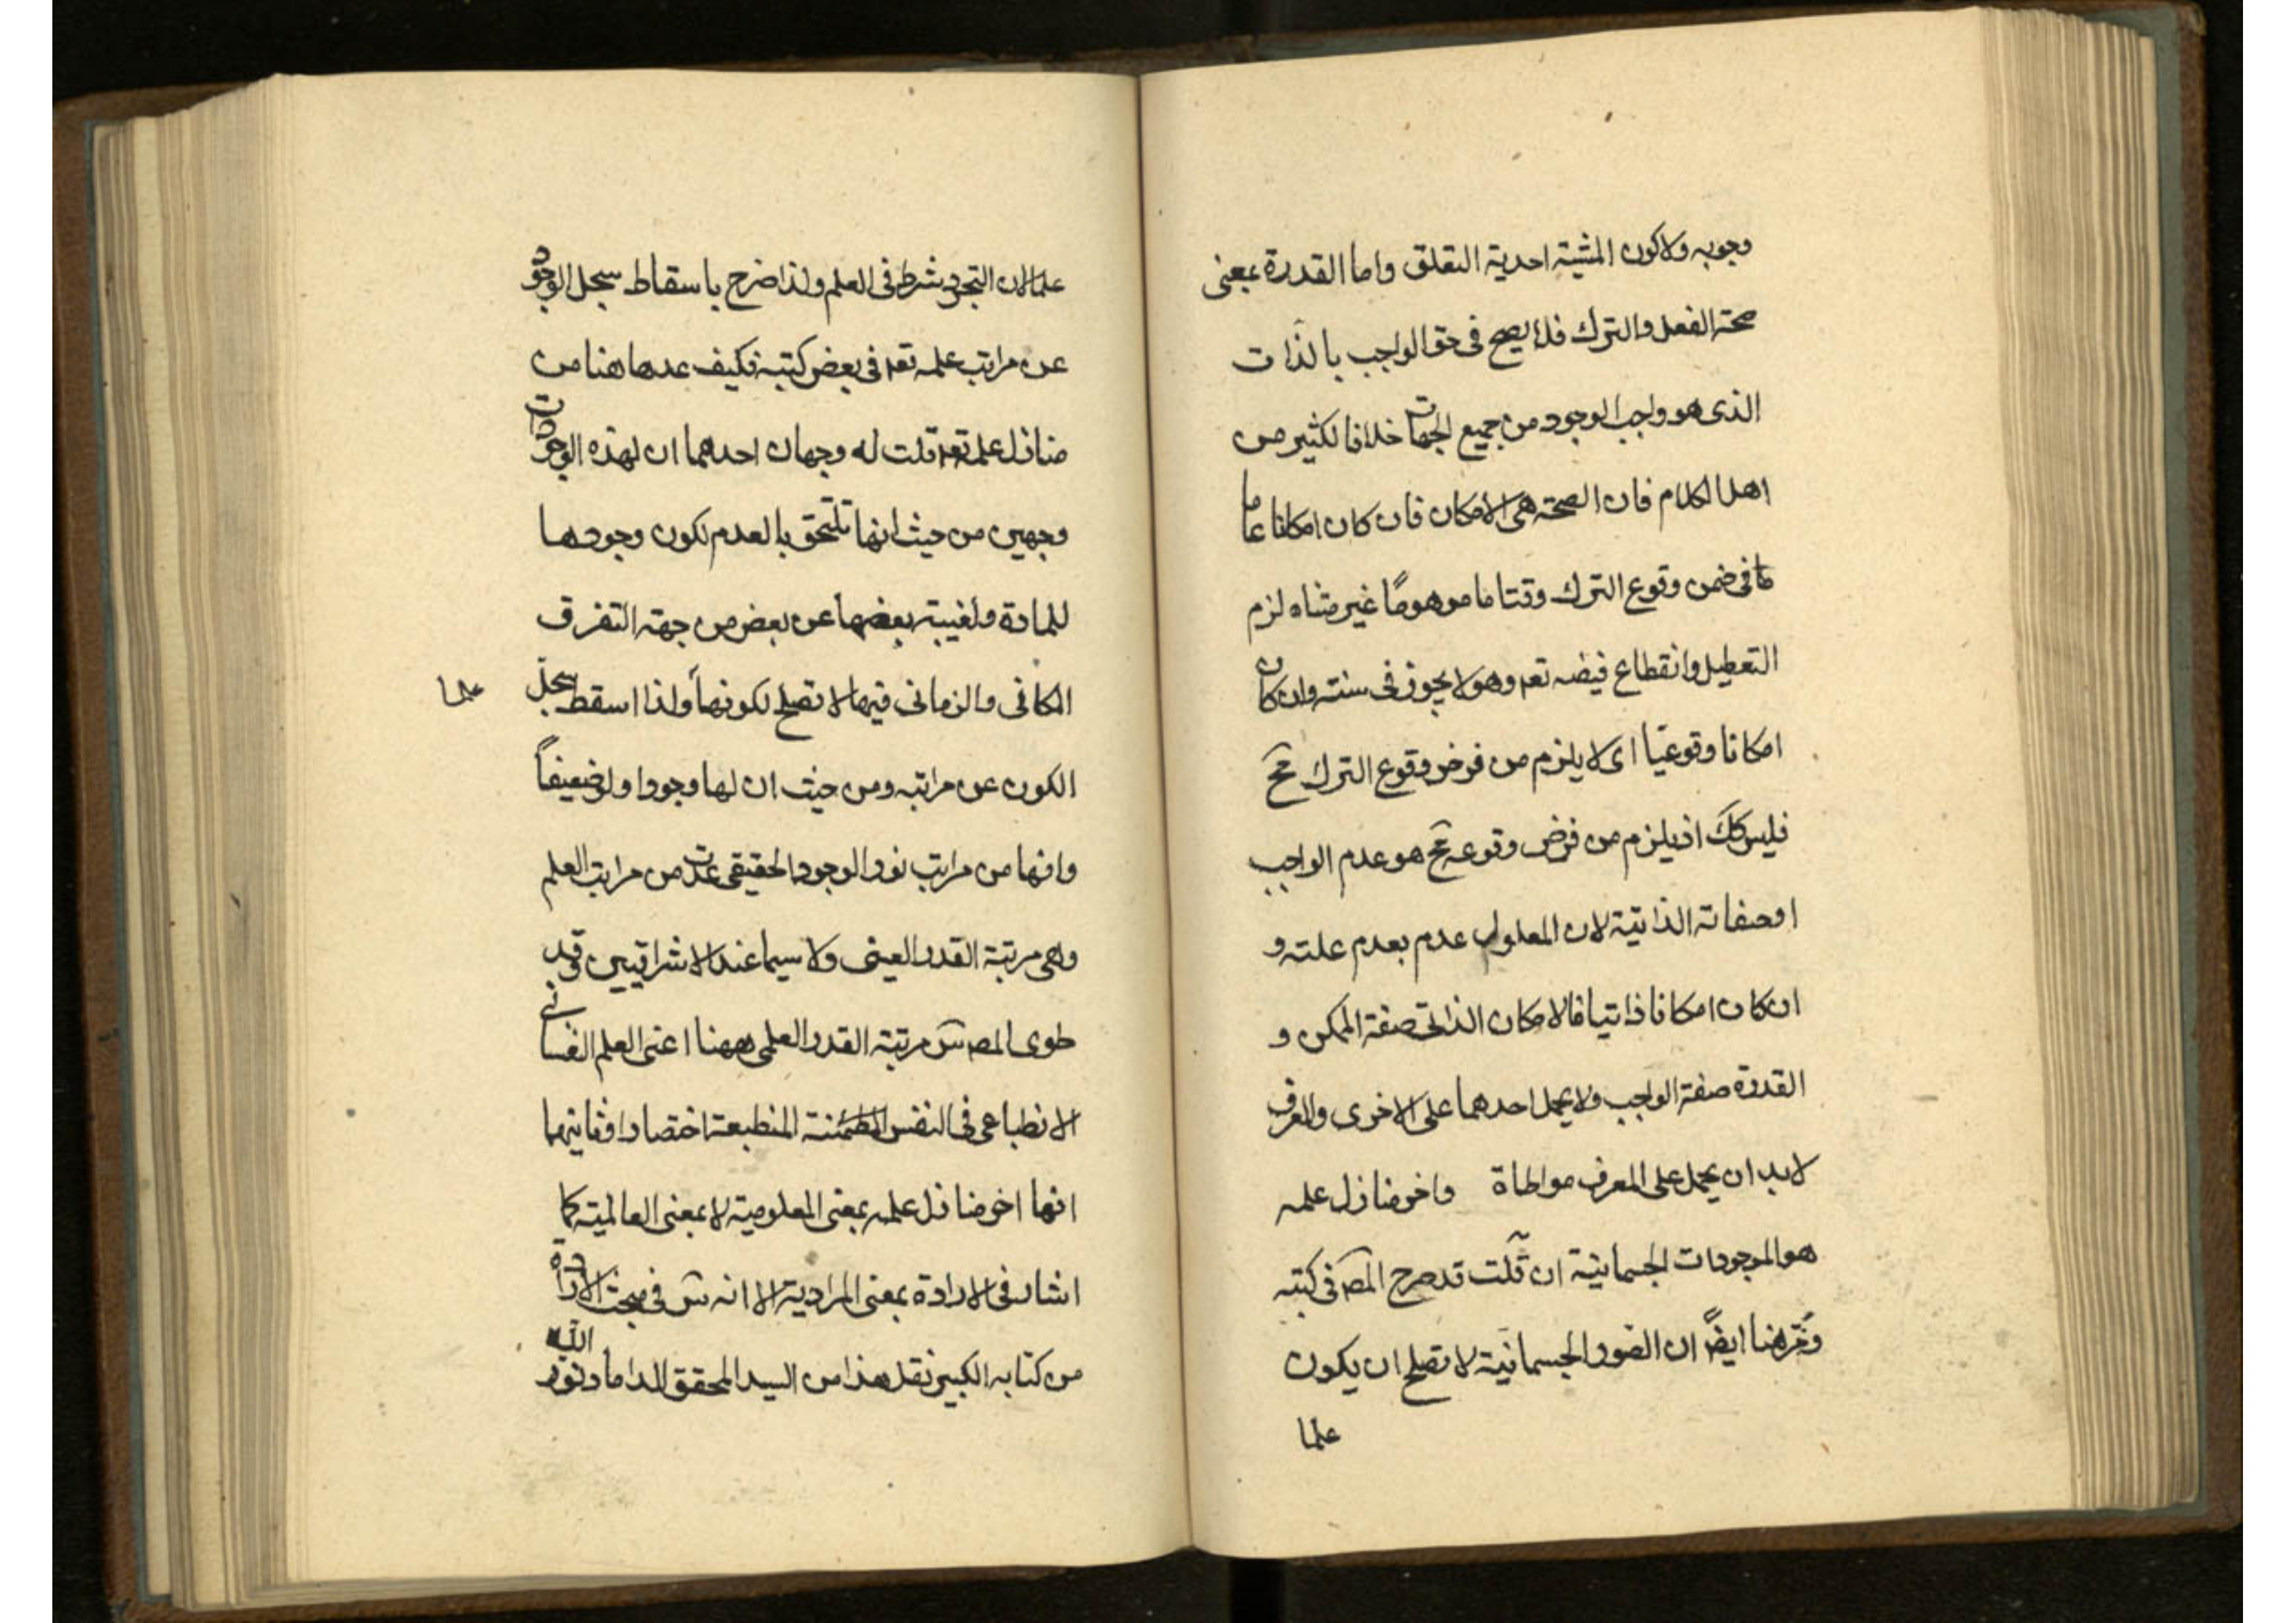 وجوبه ولاكون المشية احدية التعلق واما القدرة بمعنى
صحة الفعل والترك فلا يصح فى حق الواجب بالذات
الذى هو واجب الوجود من جميع الجهات خلافا لكثير من
اهل الكلام فان الصحة هى الامكان فان كان امكانا عاما
فى ضمن وقوع الترك وقتا ما موهومًا غير متناه لزم
التعطيل وانقطاع فيضه تعه وهو لا يجوز فى سنته وان كان
امكانا وقوعيّا اى لا يلزم من فرض وقوع الترك مح
فليس كك اذ يلزم من فرض وقوعه مح هو عدم الواجب
اوصفاته الذاتية لان المعلول عدم بعدم علته و
ان كان امكانا ذاتيا فالامكان الذاتى صفة الممكن و
القدرة صفة الواجب ولا يحمل احدهما على الاخرى والمعرف
لابد ان يحمل على المعرف مواطاة واخر منازل علمه
هو الموجودات الجسمانية ان قلت قد صرح المصّ فى كتبه
هنا ايضًا ان الصور الجسمانية لا تصلح ان يكون
علما
علما لان التجرد شرط فى العلم ولذا صرح باسقاط سجل الوجود
عن مراتب علمه تعه فى بعض كتبه فكيف عدها هنا من
منازل علمه تعه قلت له وجهان احدهما ان لهذه الوجودات
وجهين من حيث انها تلتحق بالعدم لكون وجودها
للمادة ولغيبة بعضها عن بعض من جهة التفرق
المكانى والزمانى فيها لا تصلح لكونها ولذا اسقط سجل
علما
الكون عن مراتبه ومن حيث ان لها وجودا ولو ضعيفاً
وانها من مراتب نور الوجود الحقيقى عدت من مراتب العلم
وهى مرتبة القدر العينى ولا سيما عند الاشراقيين وقد
طوى المصّ سّ مرتبة القدر العلمى ههنا اعنى العلم النفسانى
الانطباعى فى النفس المنطبعة اختصارا وثانيهما
انها اخر منازل علمه بمعنى المعلومية لا بمعنى العالمية كما
اشار فى الارادة بمعنى المرادية الا انه سّ فى مبحث الارادة
من كتابه الكبير نقل هذا من السيد المحقق الداماد نور الله